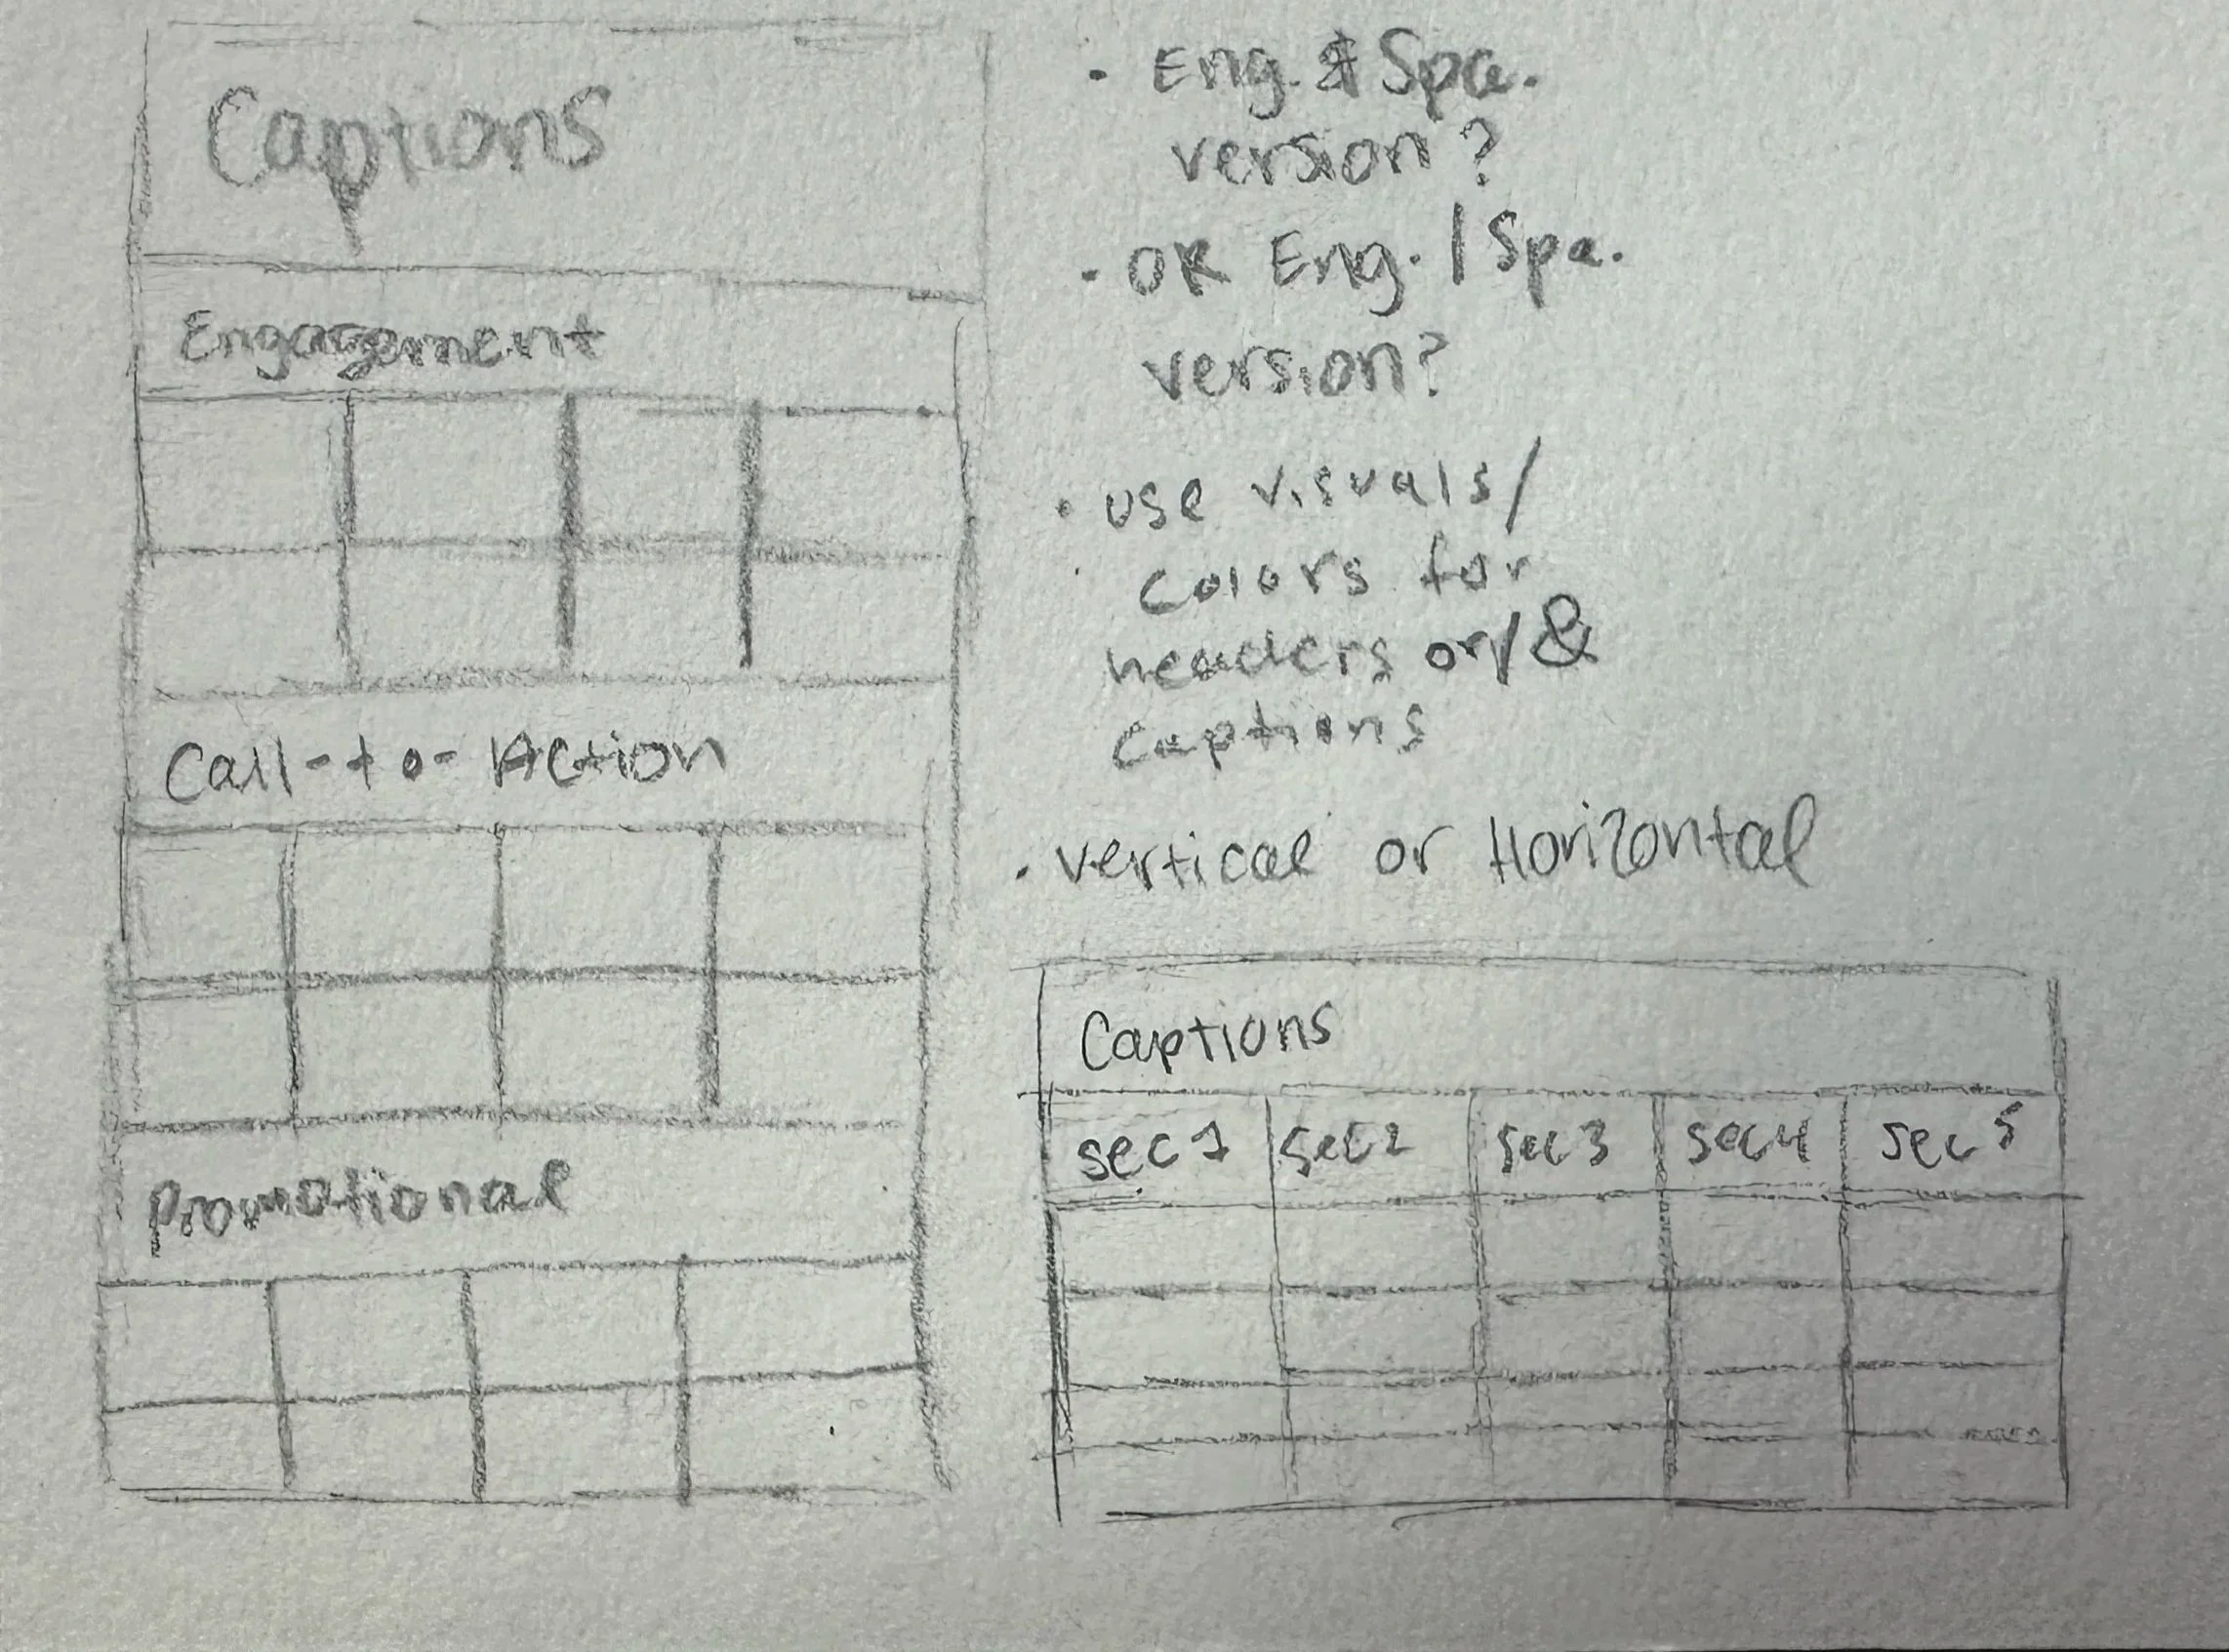 Captions
Engagement
Call-to-Action
Promotional
· Eng. & Spa.
version?
· OR Eng. | Spa.
version?
· use visuals/
colors for
headers or/&
captions
· vertical or Horizontal
Captions
sec 1 sec 2 sec 3 sec 4 sec 5